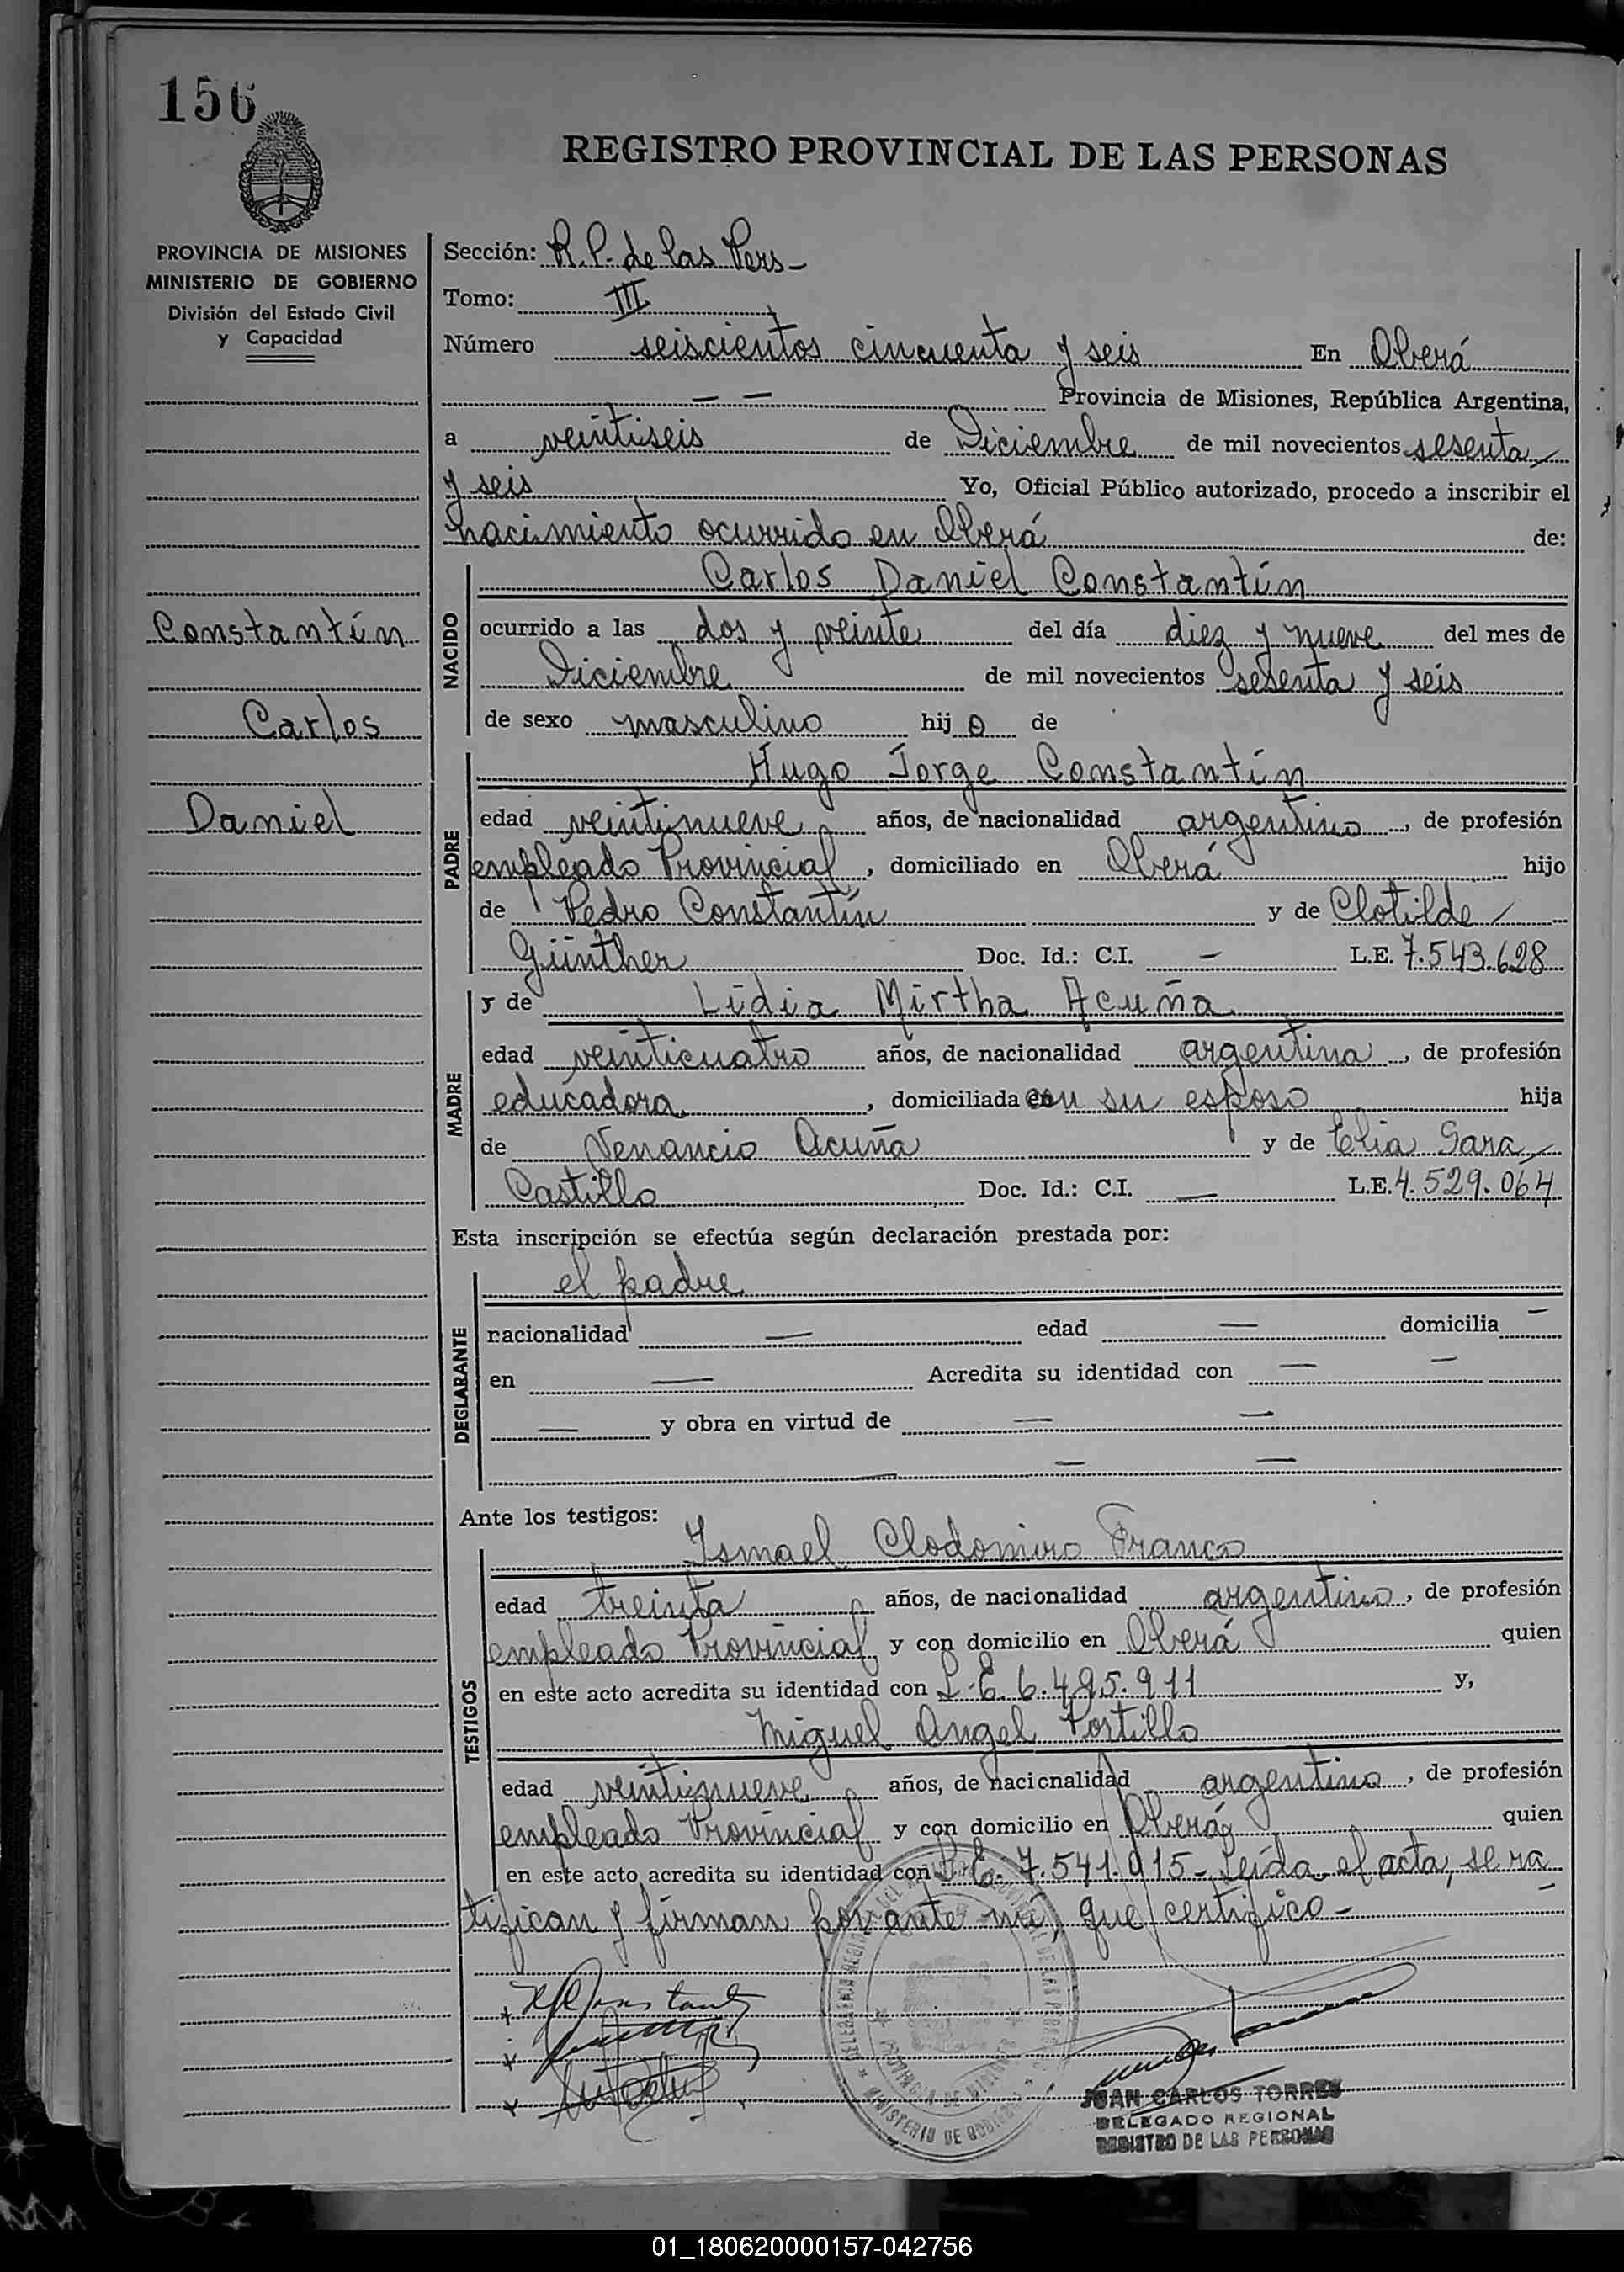 156
REGISTRO PROVINCIAL DE LAS PERSONAS
PROVINCIA DE MISIONES
MINISTERIO DE GOBIERNO
División del Estado Civil
y Capacidad
Constantín
Carlos
Daniel
Sección: R.P. de las Pers-
Tomo: III
Número seiscientos cincuenta y seis En Oberá
— — Provincia de Misiones, República Argentina,
a veintiseis de Diciembre de mil novecientos sesenta
y seis Yo, Oficial Público autorizado, procedo a inscribir el
nacimiento ocurrido en Oberá de:
NACIDO
Carlos Daniel Constantín
ocurrido a las dos y veinte del día diez y nueve del mes de
Diciembre de mil novecientos sesenta y seis
de sexo masculino hijo de
PADRE
Hugo Jorge Constantín
edad veintinueve años, de nacionalidad argentino, de profesión
empleado Provincial, domiciliado en Oberá hijo
de Pedro Constantín y de Clotilde
Günther Doc. Id.: C.I. — L.E. 7.543.628
MADRE
y de Lidia Mirtha Acuña
edad veinticuatro años, de nacionalidad argentina, de profesión
educadora, domiciliada con su esposo hija
de Venancio Acuña y de Elia Sara
Castillo Doc. Id.: C.I. — L.E. 4.529.064
Esta inscripción se efectúa según declaración prestada por:
DECLARANTE
el padre
nacionalidad — edad — domicilia —
en — Acredita su identidad con — —
— y obra en virtud de — —
— — —
Ante los testigos:
TESTIGOS
Ismael Clodomiro Franco
edad treinta años, de nacionalidad argentino, de profesión
empleado Provincial y con domicilio en Oberá quien
en este acto acredita su identidad con L.E. 6.495.911 y,
Miguel Angel Portillo
edad veintinueve años, de nacionalidad argentino, de profesión
empleado Provincial y con domicilio en Oberá quien
en este acto acredita su identidad con L.E. 7.541.915- Leída el acta, se ra
tifican y firman por ante mí, que certifico-
PROVINCIA DE MISIONES
MINISTERIO DE GOBIERNO
JUAN CARLOS TORRES
DELEGADO REGIONAL
REGISTRO DE LAS PERSONAS
01_180620000157-042756